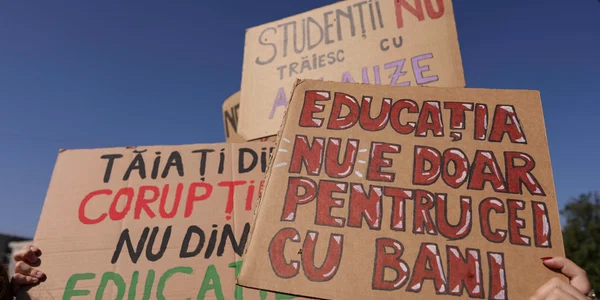 STUDENȚII NU
TRĂIESC CU
TĂIAȚI
CORUPȚI
NU DIN
EDUCAȚ
EDUCAȚIA
NU E DOAR
PENTRU CEI
CU BANI